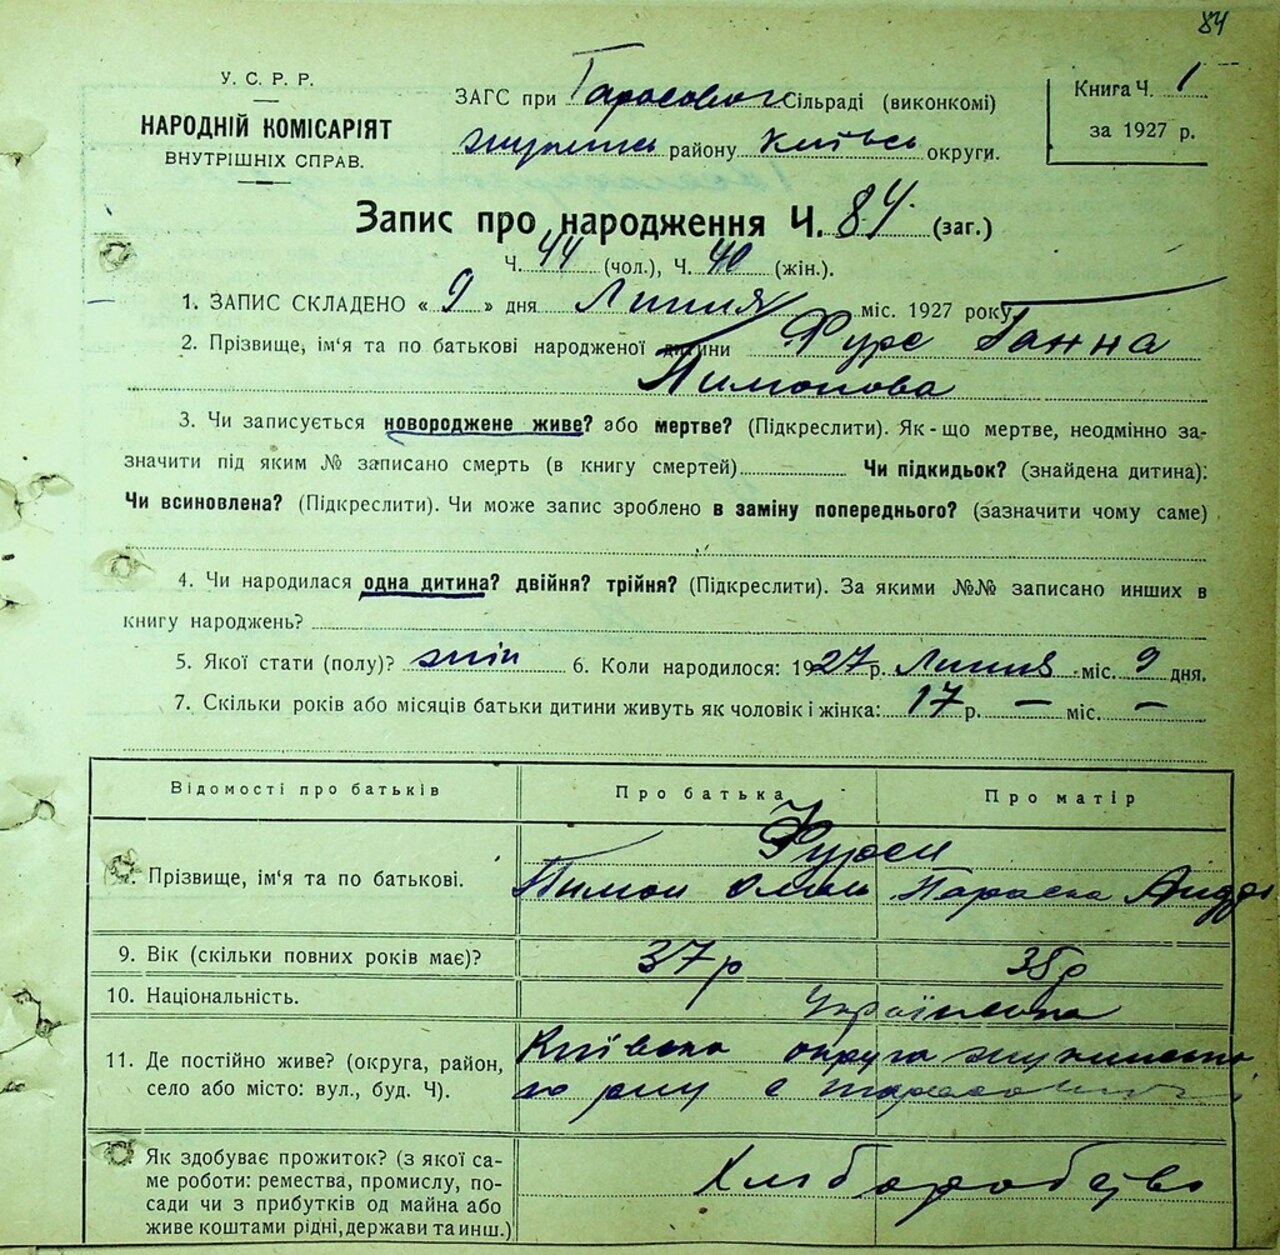 84
У. С. Р. Р.
НАРОДНІЙ КОМІСАРІЯТ
ВНУТРІШНІХ СПРАВ.
ЗАГС при Сільраді (виконкомі)
району Київсь округи.
Книга Ч. 1
за 1927 р.
Запис про народження Ч. 84 (заг.)
Ч. 44 (чол.), Ч. 40 (жін.).
1. ЗАПИС СКЛАДЕНО « 9 » дня Липня міс. 1927 року
2. Прізвище, ім'я та по батькові народженої дитини Фурс Ганна
Пимонова
3. Чи записується новороджене живе? або мертве? (Підкреслити). Як-що мертве, неодмінно за-
значити під яким № записано смерть (в книгу смертей) Чи підкидьок? (знайдена дитина):
Чи всиновлена? (Підкреслити). Чи може запис зроблено в заміну попереднього? (зазначити чому саме)
4. Чи народилася одна дитина? двійня? трійня? (Підкреслити). За якими №№ записано инших в
книгу народжень?
5. Якої стати (полу)? жін 6. Коли народилося: 1927 р. Липня міс. 9 дня.
7. Скільки років або місяців батьки дитини живуть як чоловік і жінка: 17 р. — міс. —
Відомості про батьків
Про батька
Про матір
Прізвище, ім'я та по батькові.
Фурси
Пимон Параска
9. Вік (скільки повних років має)?
37 р
38 р
10. Національність.
11. Де постійно живе? (округа, район,
село або місто: вул., буд. Ч).
Київська округа
с
Як здобуває прожиток? (з якої са-
ме роботи: ремества, промислу, по-
сади чи з прибутків од майна або
живе коштами рідні, держави та инш.)
Хліборобство